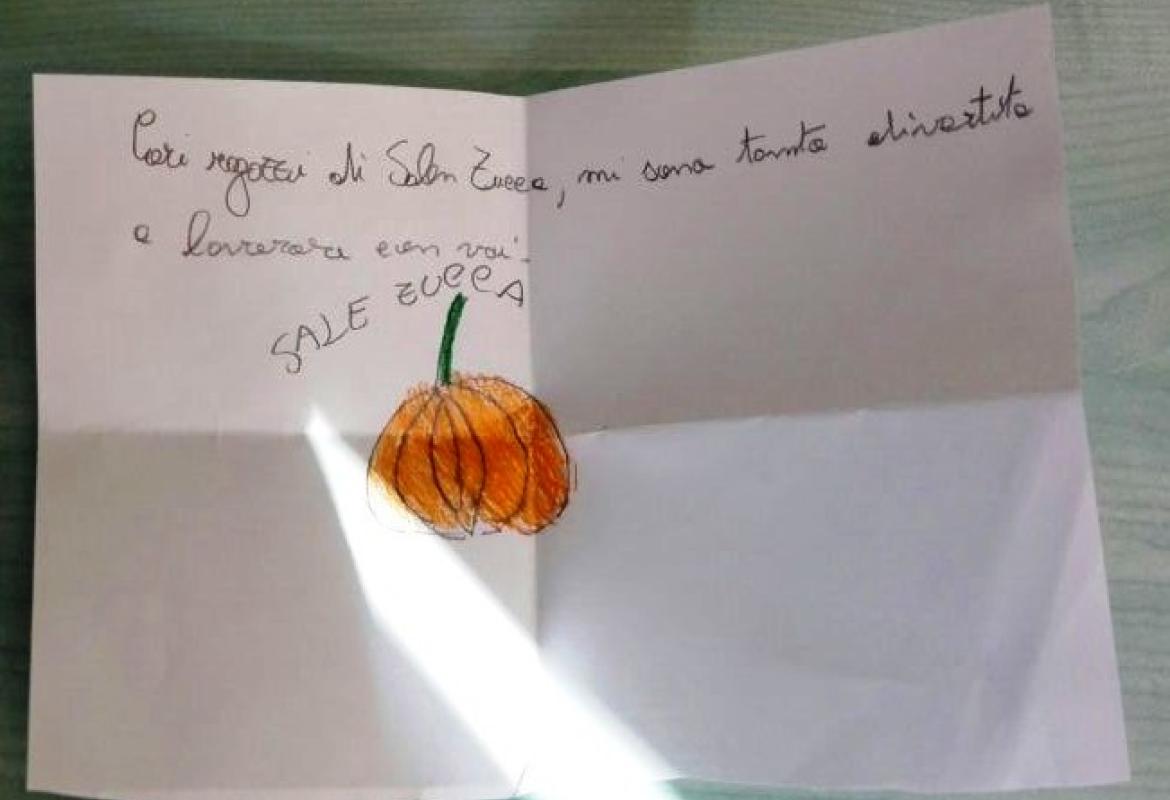 Cari ragazzi di Salen Zucca, mi sono tanto divertita
a lavorare con voi.
SALE ZUCCA